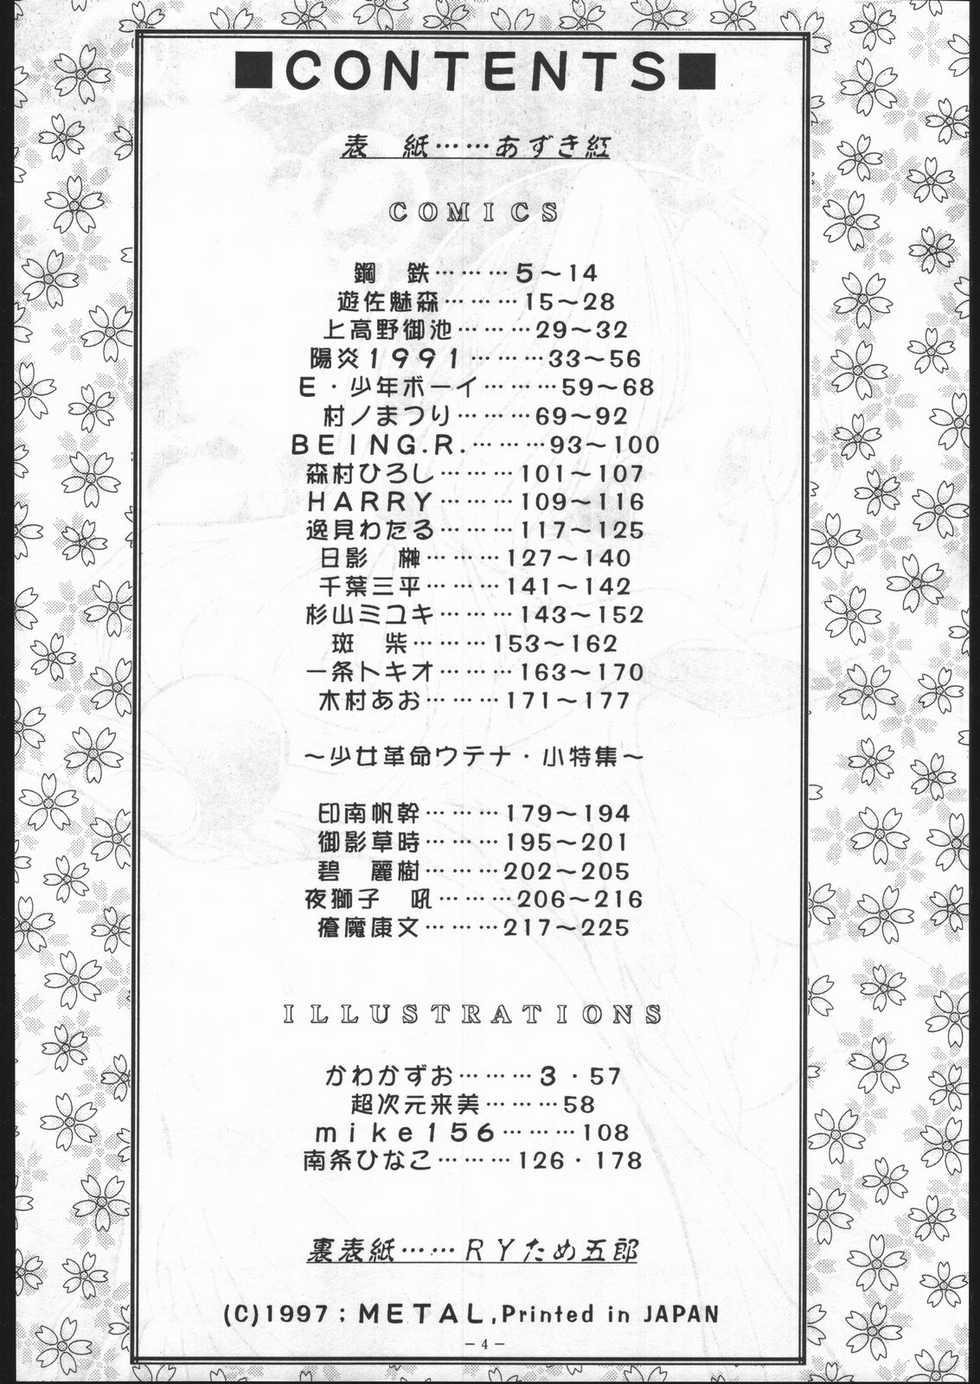 ■CONTENTS■
表　紙……あずき紅
COMICS
鋼　鉄………5～14
遊佐魅森………15～28
上高野御池………29～32
陽炎1991………33～56
E・少年ボーイ………59～68
村ノまつり………69～92
BEING.R.………93～100
森村ひろし………101～107
HARRY………109～116
逸見わたる………117～125
日影　榊………127～140
千葉三平………141～142
杉山ミユキ………143～152
斑　柴………153～162
一条トキオ………163～170
木村あお………171～177
～少女革命ウテナ・小特集～
印南帆幹………179～194
御影草時………195～201
碧　麗樹………202～205
夜獅子　吼………206～216
瘡魔康文………217～225
ILLUSTRATIONS
かわかずお………3・57
超次元来美………58
mike156………108
南条ひなこ………126・178
裏表紙……ＲＹため五郎
(C)1997；METAL,Printed in JAPAN
－4－